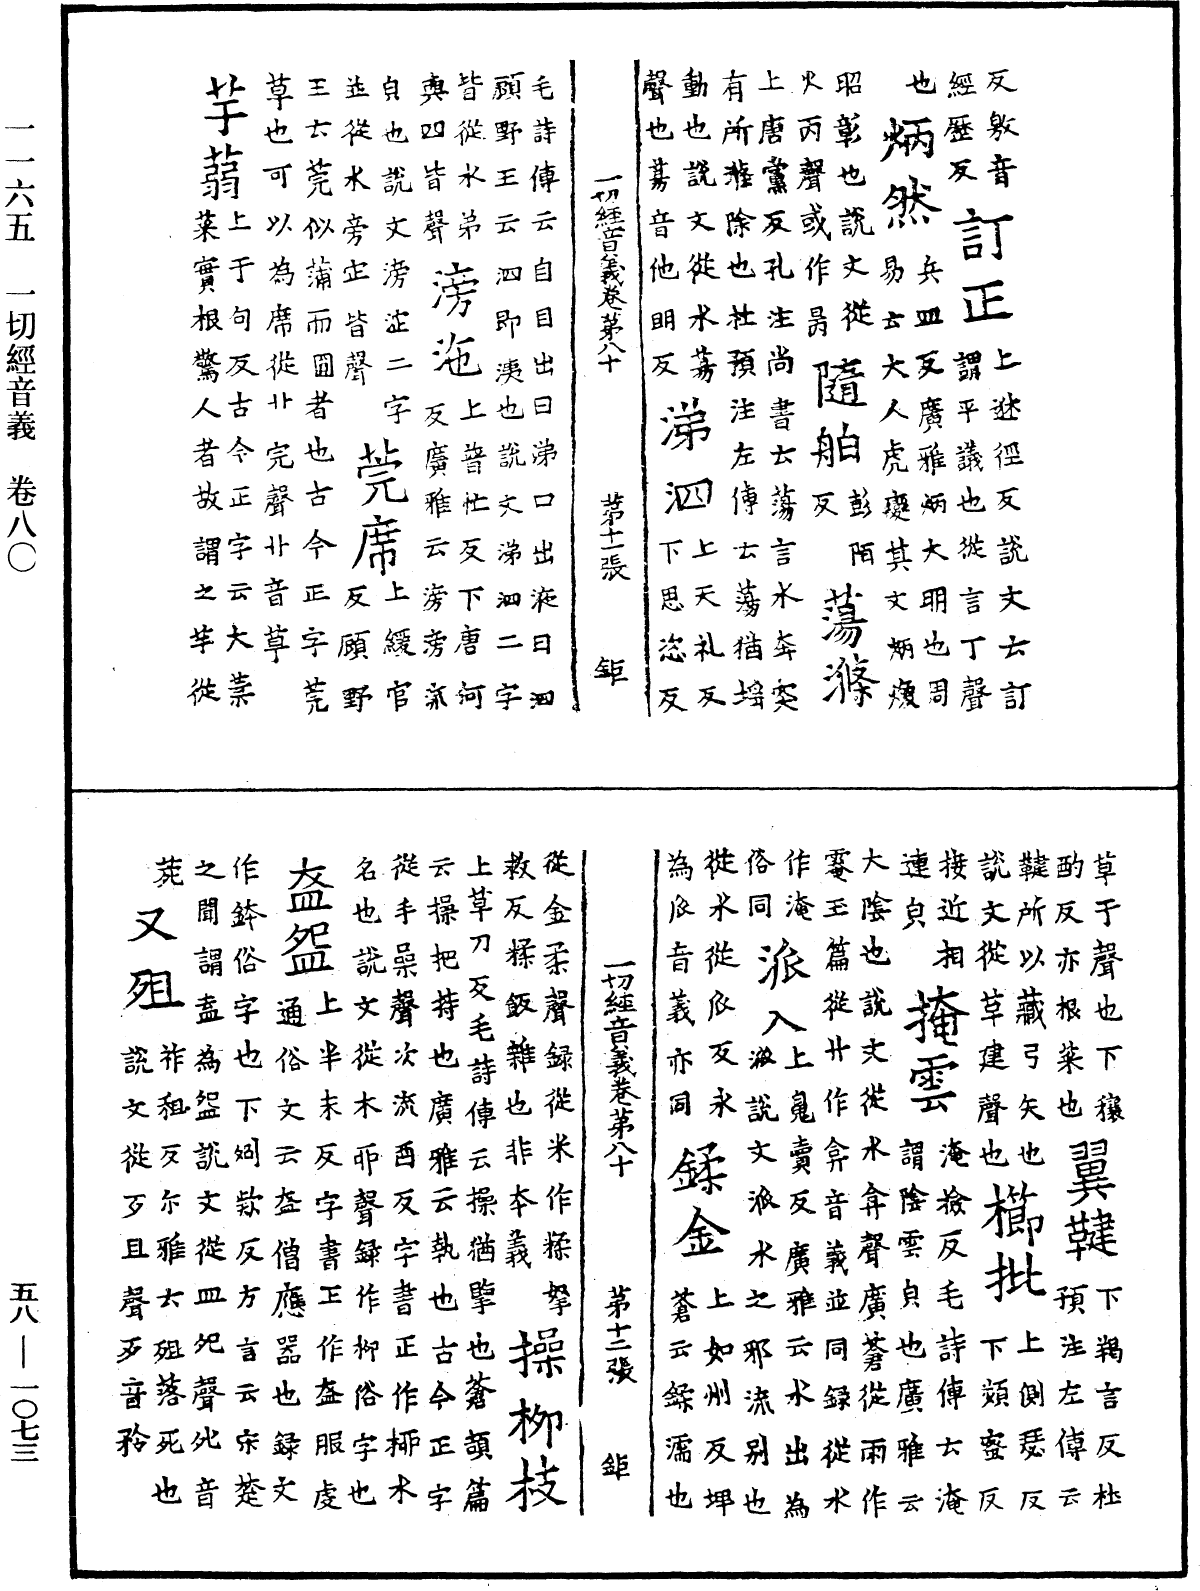 反敫音
經歷反
訂正
上逖徑反說文云訂
謂平議也從言丁聲
也
炳然
兵皿反廣雅炳大明也周
易云大人虎變其文炳煥
昭彰也說文從
火丙聲或作昺
隨舶
彭陌
反
蕩滌
上唐黨反孔注尚書云蕩言水奔突
有所滌除也杜預注左傳云蕩猶搖
動也說文從水募
聲也募音他朗反
涕泗
上天礼反
下思恣反
一切經音義卷第八十 第十一張 鉅
毛詩傳云自目出曰涕口出液曰泗
顧野王云泗即洟也說文涕泗二字
皆從水弟
與四皆聲
滂沲
上普忙反下唐河
反廣雅云滂滂流
皃也說文滂沲二字
並從水旁㐌皆聲
莞席
上緩官
反顧野
王云莞似蒲而圓者也古今正字莞
草也可以為席從艹完聲艹音草
芋蒻
上于句反古今正字云大葉
菜實根驚人者故謂之芋從
草于聲也下穰
酌反亦根菜也
翼鞬
下羯言反杜
預注左傳云
鞬所以藏弓矢也
說文從革建聲也
櫛批
上側瑟反
下頻蜜反
接近相
連皃
掩雲
淹撿反毛詩傳云淹
謂陰雲皃也廣雅云
大陰也說文從水弇聲廣蒼從雨作
玉篇從廾作弇音義並同錄從水
作淹
俗同
派入
上嵬賣反廣雅云水出為
派說文派水之邪流別也
從水從𠂢反永
為𠂢音義亦同
鍒金
上如州反埤
蒼云鍒濡也
一切經音義卷第八十 第十二張 鉅
從金柔聲錄從米作糅拏
救反糅飯雜也非本義
操柳枝
上草刀反毛詩傳云操猶擥也蒼頡篇
云操把持也廣雅云執也古今正字
從手喿聲次流酉反字書正作桺木
名也說文從木丣聲錄作柳俗字也
盋盌
上半末反字書正作盋服虔
通俗文云盋僧應器也錄文
作鉢俗字也下剜欵反方言云宋楚
之間謂盍為盌說文從皿夗聲夗音
菀
又殂
祚租反尒雅云殂落死也
說文從歹且聲歹音矜
一一六五 一切經音義 卷八〇
五八—一〇七三